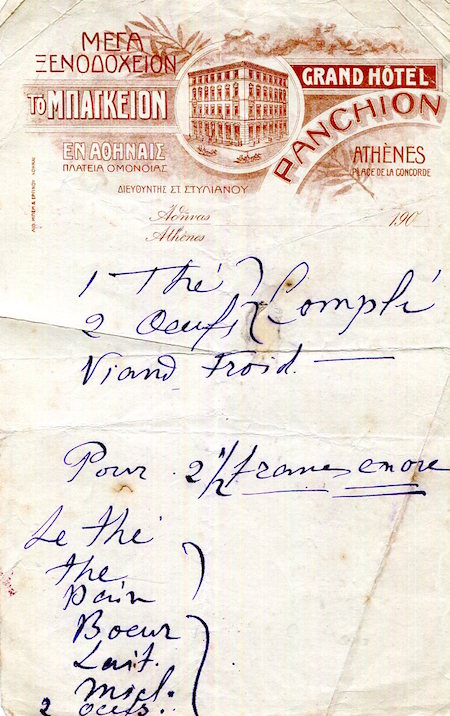 ΜΕΓΑ
ΞΕΝΟΔΟΧΕΙΟΝ
ΤΟ ΜΠΑΓΚΕΙΟΝ
ΕΝ ΑΘΗΝΑΙΣ
ΠΛΑΤΕΙΑ ΟΜΟΝΟΙΑΣ
GRAND HÔTEL
PANCHION
ATHÈNES
PLACE DE LA CONCORDE
ΔΙΕΥΘΥΝΤΗΣ ΣΤ. ΣΤΥΛΙΑΝΟΥ
Ἀθήνας
Athènes
190
1 Thé
2 Oeufs
Complé
Viand Froid.
Pour 2 1/2 francs encore
Le thé
the
Pain
Boeur
Lait.
miel.
2 oeufs.